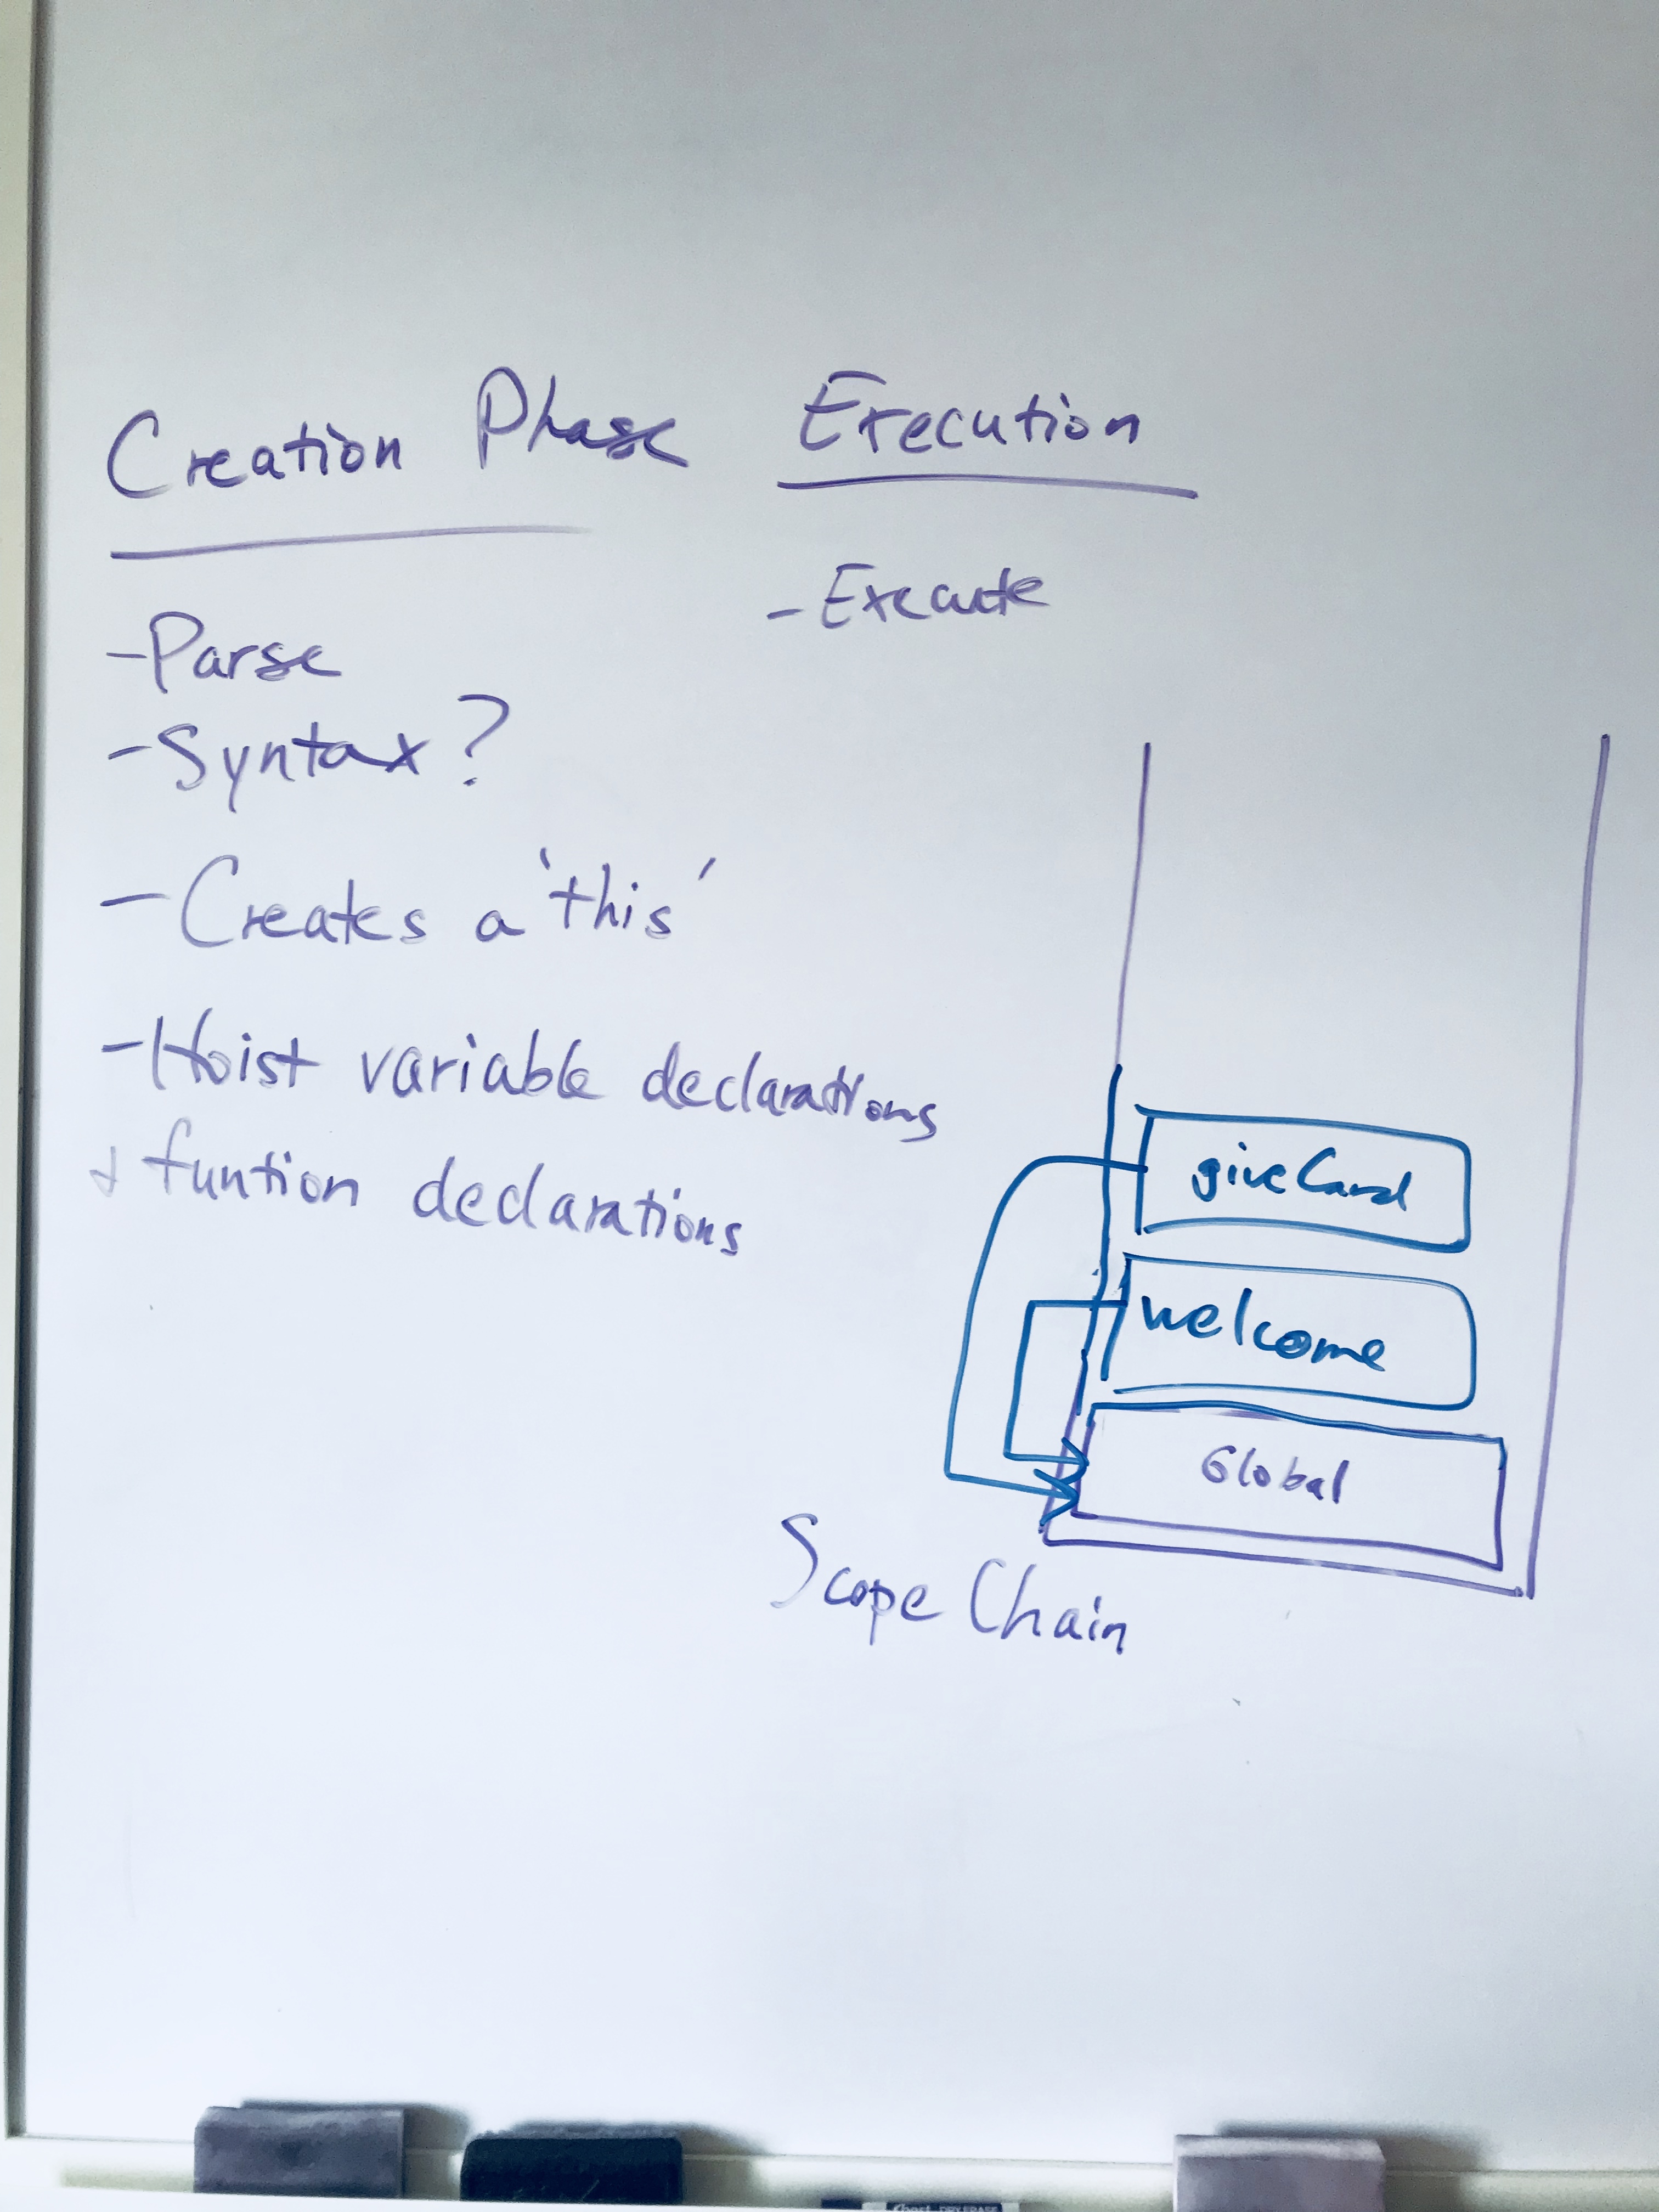 Creation Phase
- Parse
- Syntax?
- Creates a 'this'
- Hoist variable declarations
+ funtion declarations
Execution
- Execute
giveCard
welcome
Global
Scope Chain
DRY ERASE